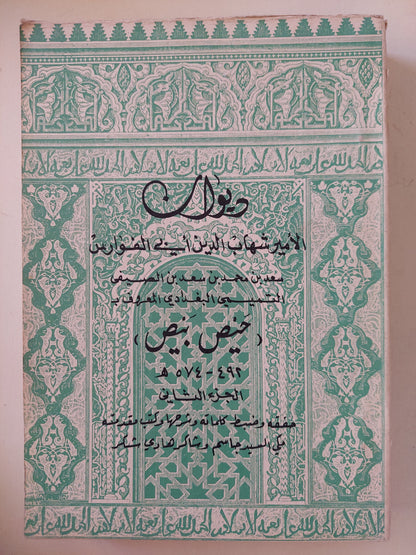 ديوان
الأمير شهاب الدين أبي الفوارس
سعد بن محمد بن سعد بن الصيفي
التميمي البغدادي المعروف بـ
( حَيْصَ بَيْصَ )
٤٩٢ - ٥٧٤ هـ
الجزء الثاني
حققه وضبط كلماته وشرحها وكتب مقدمته
مكي السيد جاسم وشاكر هادي شكر